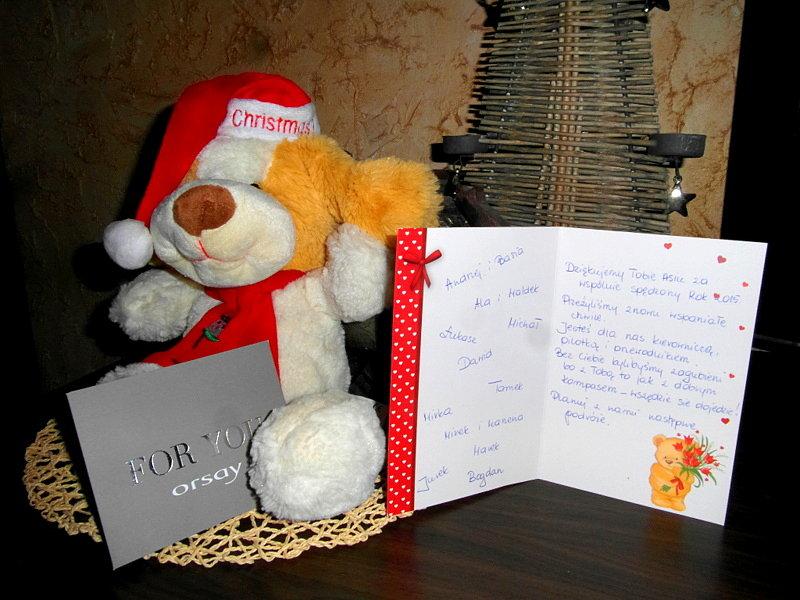 Christmas
FOR YOU
orsay
Andrzej i Basia
Ala i Waldek
Michał
Łukasz
Dawid
Tomek
Mirka
Mirek i Marzena
Marek
Jurek
Bogdan
Dziękujemy Tobie Asiu za
wspólnie spędzony Rok 2015
Przeżyliśmy znowu wspaniałe
chwile.
Jesteś dla nas kierowniczką,
pilotką i przewodnikiem.
Bez Ciebie bylibyśmy zagubieni
bo z Tobą, to jak z dobrym
kompasem - wszędzie się dojedzie!
Planuj z nami następne
podróże.